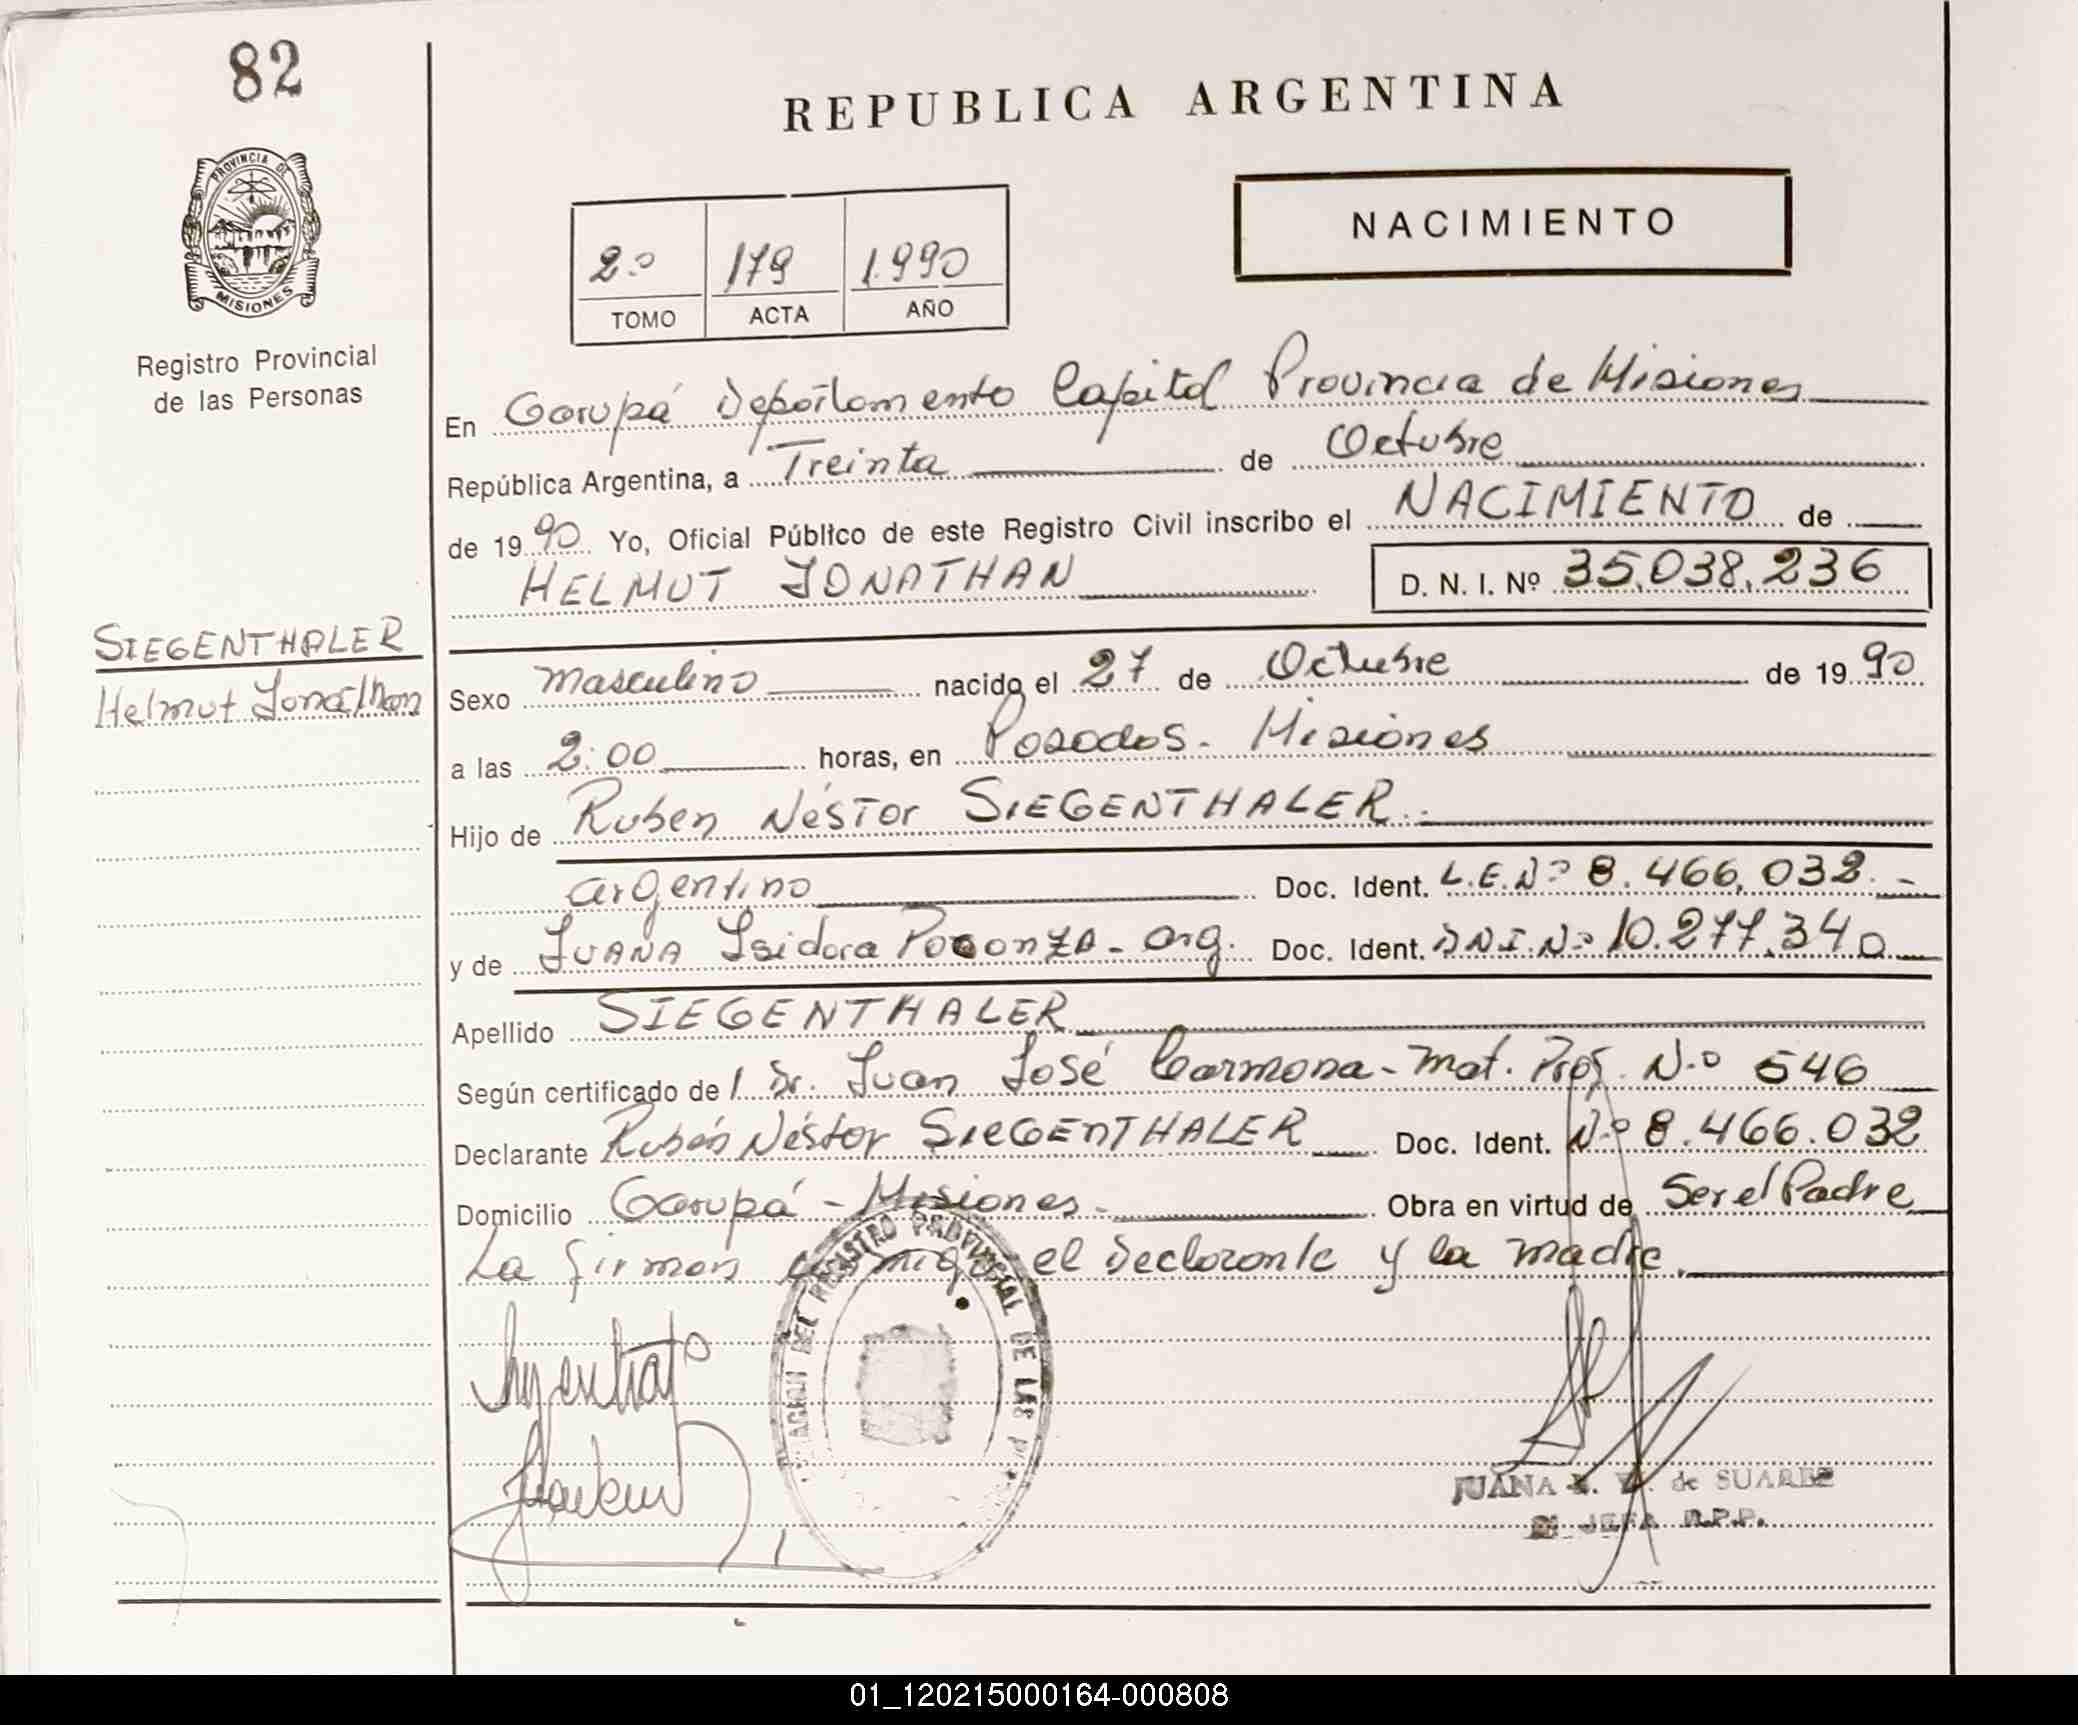 82
REPUBLICA ARGENTINA
PROVINCIA DE
MISIONES
Registro Provincial
de las Personas
NACIMIENTO
2º 179 1.990
TOMO ACTA AÑO
En Garupá Departamento Capital Provincia de Misiones
República Argentina, a Treinta de Octubre
de 1990 Yo, Oficial Público de este Registro Civil inscribo el NACIMIENTO de
HELMUT JONATHAN D. N. I. Nº 35.038.236
SIEGENTHALER
Helmut Jonathan
Sexo masculino nacido el 27 de Octubre de 1990
a las 2:00 horas, en Posadas - Misiones
Hijo de Ruben Néstor SIEGENTHALER.
argentino Doc. Ident. L.E.Nº 8.466.032.-
y de JUANA Isidora - arg. Doc. Ident. D.N.I.Nº 10.277.340
Apellido SIEGENTHALER
Según certificado de l Dr. Juan José Carmona - Mat. Prof. N.º 546
Declarante Rubén Néstor SIEGENTHALER Doc. Ident. Nº 8.466.032
Domicilio Garupá - Misiones. Obra en virtud de Ser el Padre
La firman el declarante y la madre.
DEL REGISTRO PROVINCIAL DE LAS
JUANA de SUAREZ
JEFA R.P.P.
01_120215000164-000808